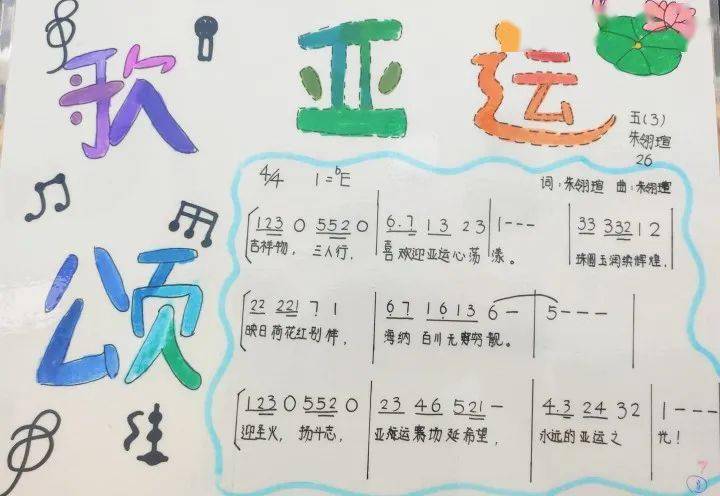 歌亚运
五(3)
朱翎瑄
26
颂
4/4 1=ᵇE
词:朱翎瑄 曲:朱翎瑄
123 0 552 0 | 6.7 1 3 2 3 | 1--- | 33 332 1 2
吉祥物, 三人行, 喜欢迎亚运心荡漾。 珠圆玉润续辉煌,
22 221 7 1 | 67 1613 6- | 5---
映日荷花红别样, 海纳百川无穷靓。
123 0 552 0 | 23 46 521- | 4.3 24 32 | 1---
迎圣火, 扬斗志, 亚残运赛场延希望, 永远的亚运之光!
7
8